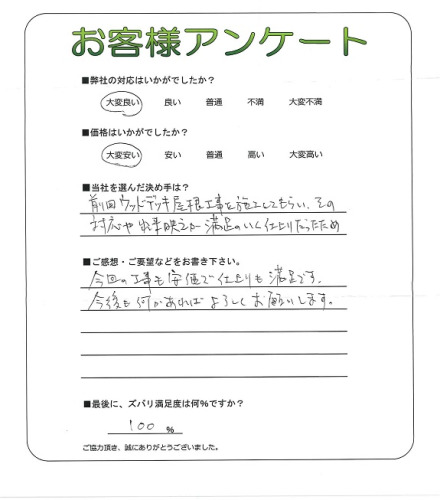 お客様アンケート
■弊社の対応はいかがでしたか？
大変良い 良い 普通 不満 大変不満
■価格はいかがでしたか？
大変安い 安い 普通 高い 大変高い
■当社を選んだ決め手は？
前回ウッドデッキ屋根工事を施工してもらい、その
対応や出来映えが満足のいく仕上りだったため
■ご感想・ご要望などをお書き下さい。
今回の工事も安価で仕上りも満足です。
今後も何かあればよろしくお願いします。
■最後に、ズバリ満足度は何％ですか？
100 %
ご協力頂き、誠にありがとうございました。